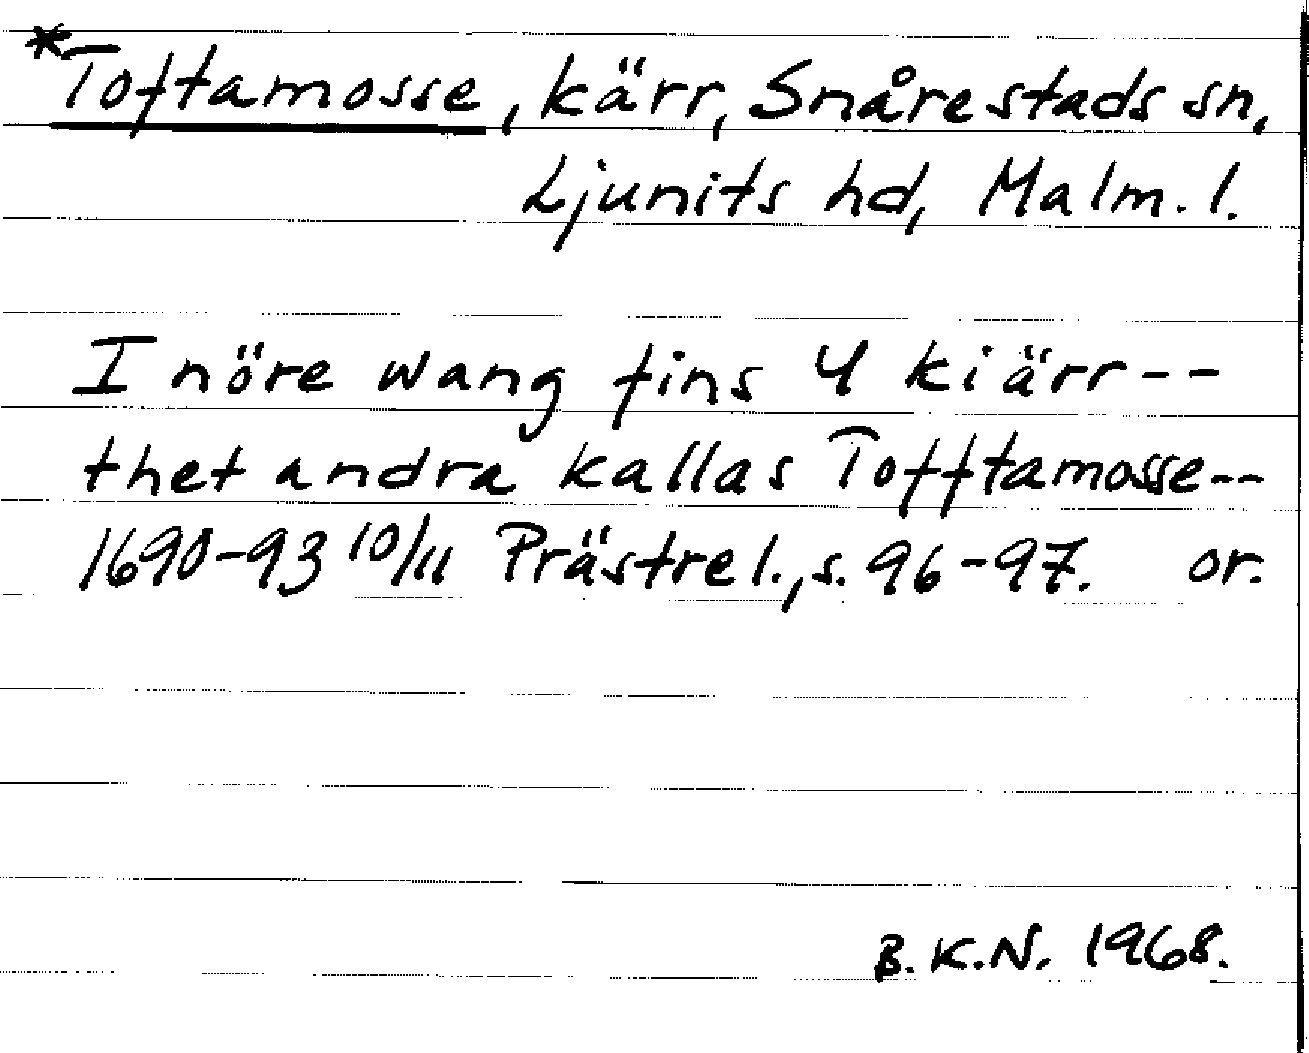 *Toftamosse, kärr, Snårestads sn,
Ljunits hd, Malm. l.
I nöre wang fins 4 kiärr--
thet andra kallas Tofftamosse--
1690-93 10/11 Prästrel., s. 96-97. or.
B.K.N. 1968.